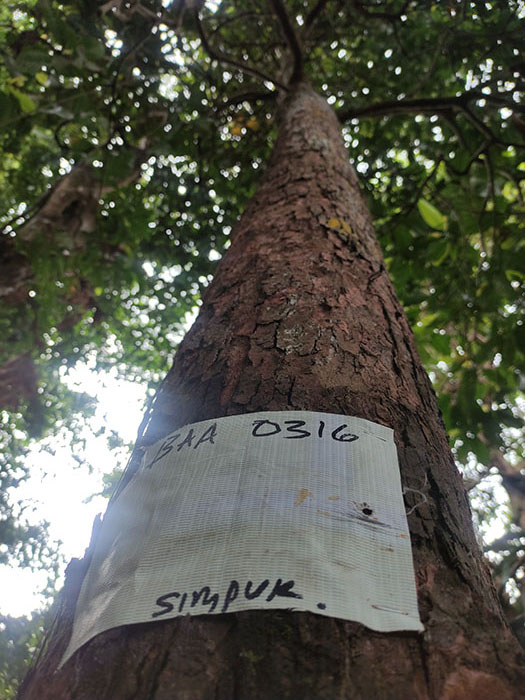 BAA 0316
SIMPUR.